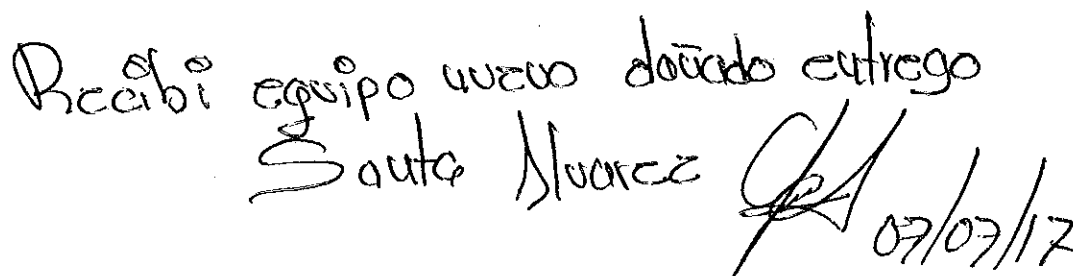 Recibi equipo nuevo dañado entrego
Santa Alvarez 07/07/17